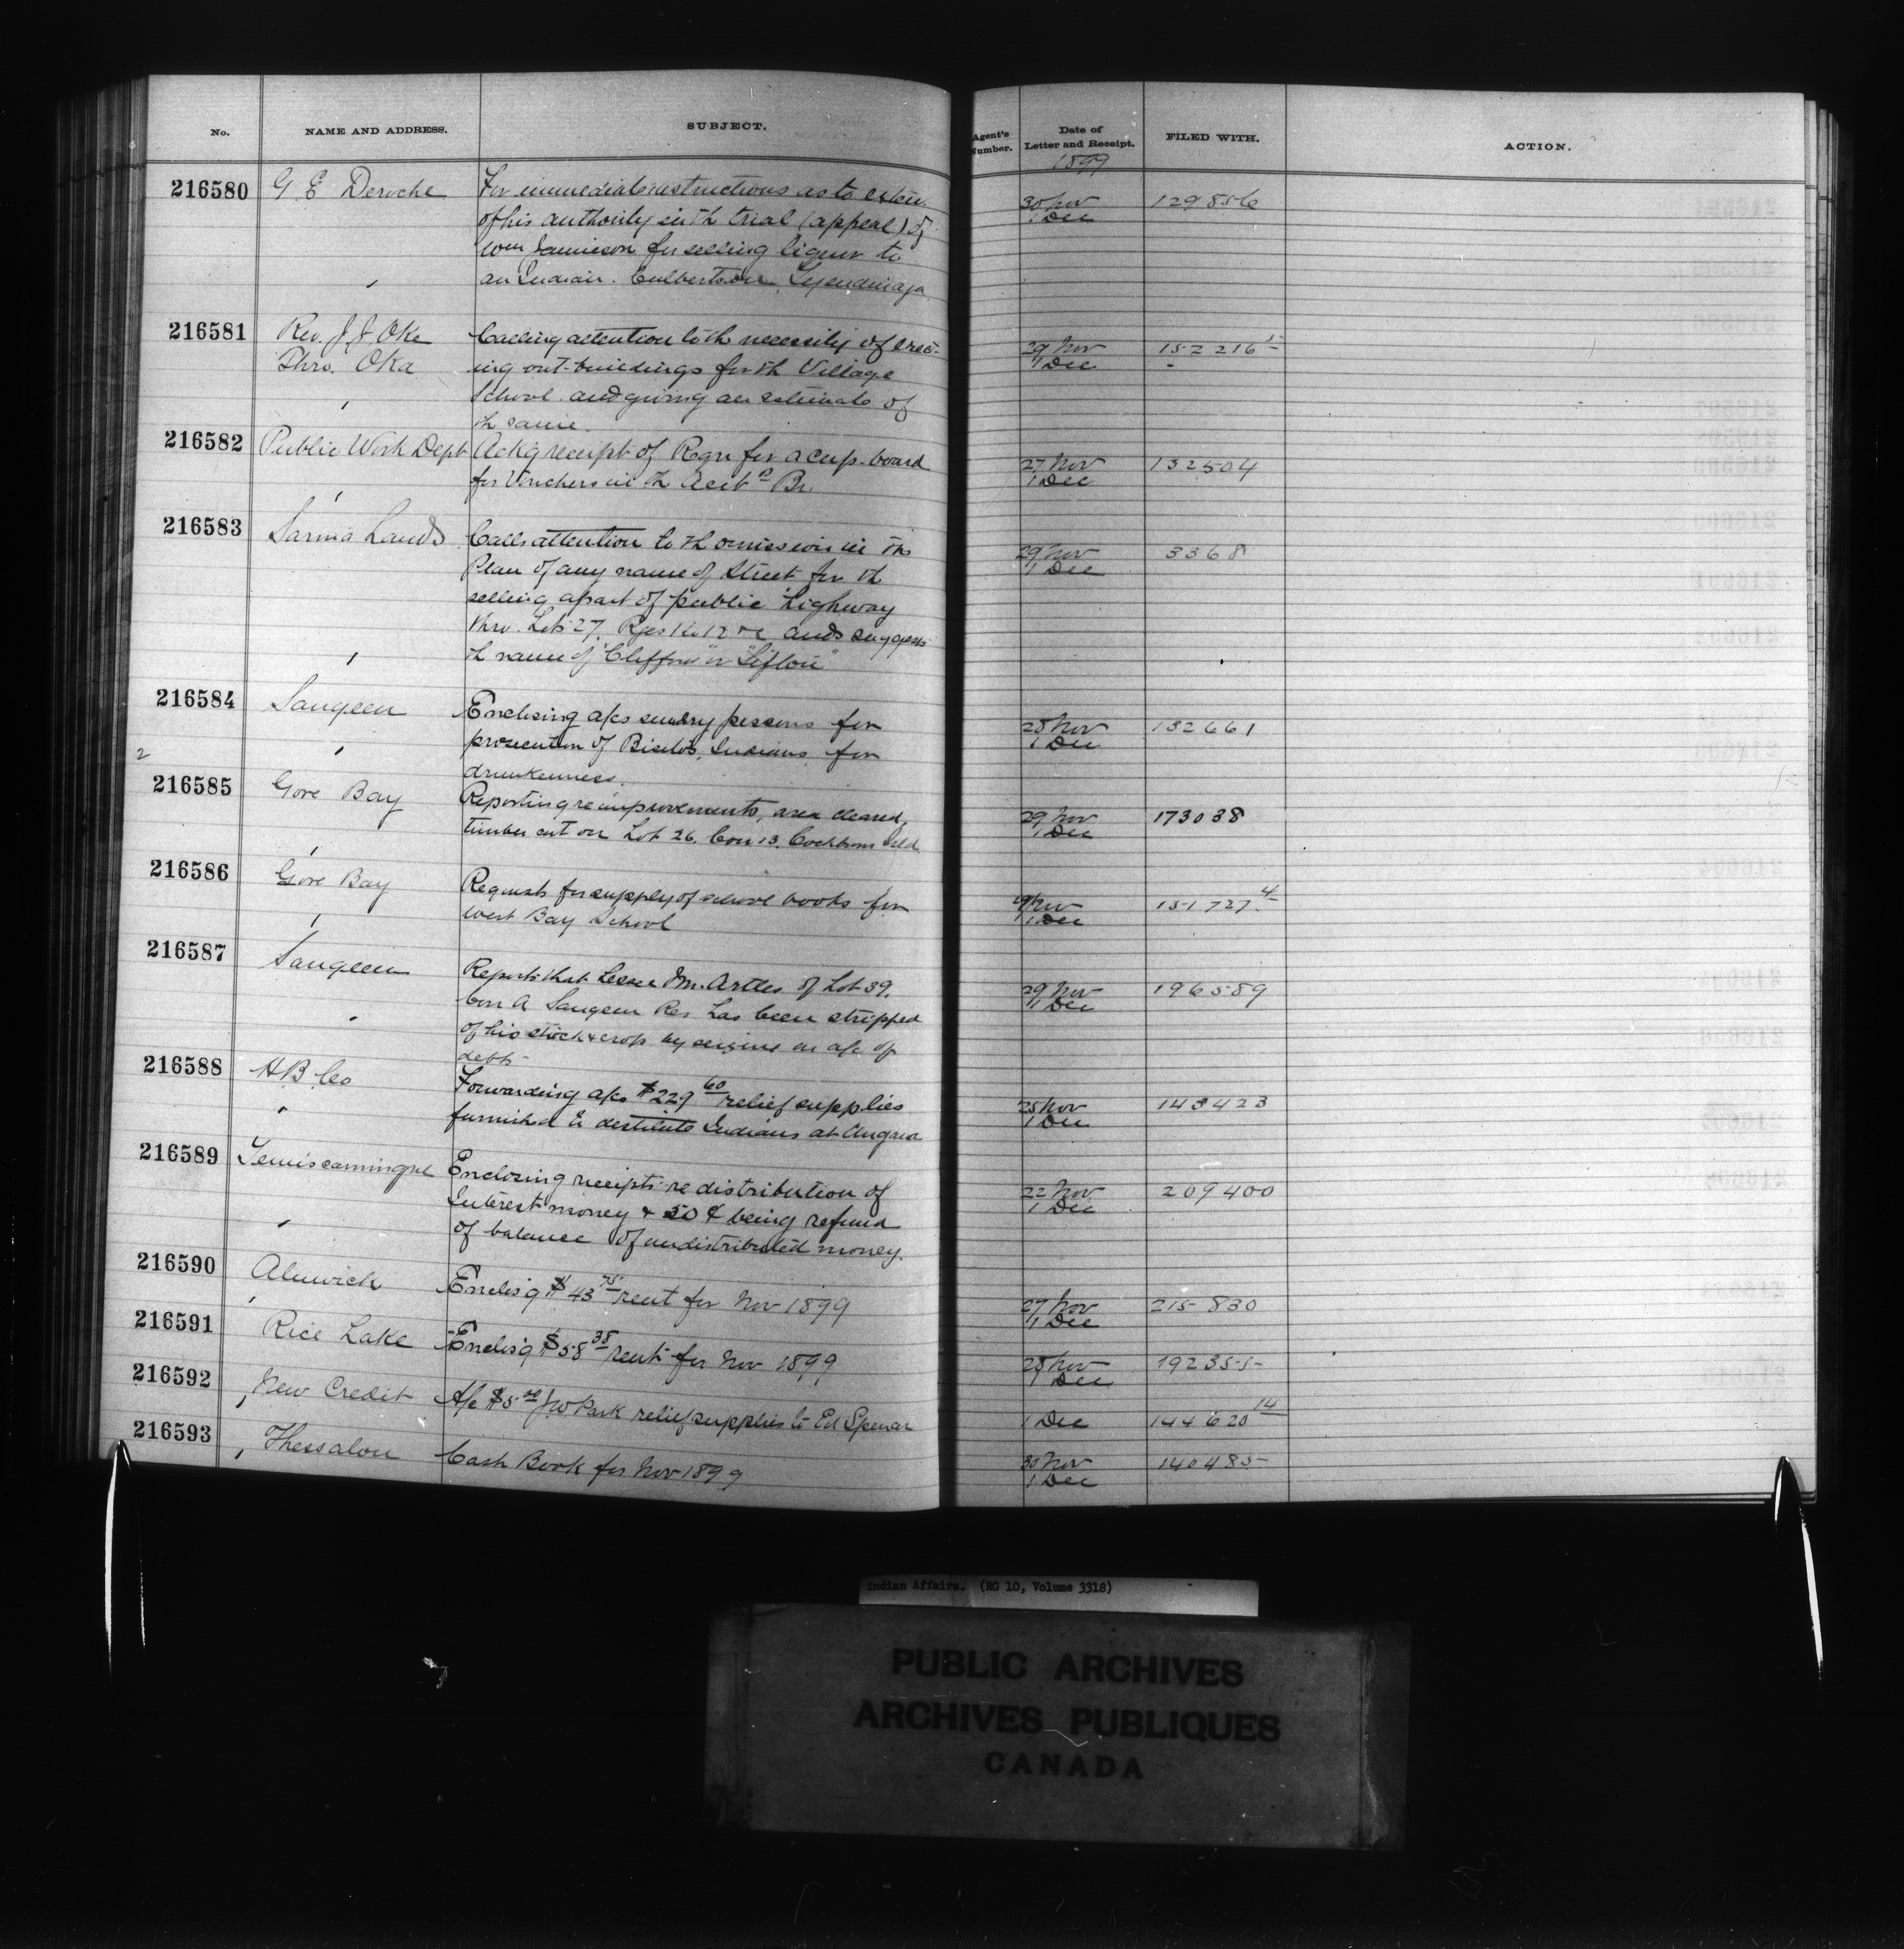 No. NAME AND ADDRESS. SUBJECT. Agent's Number. Date of Letter and Receipt. FILED WITH. ACTION.
1899
216580 G. E Deroche For immediate instructions as to exten 30 Nov 129856
of his authority in th trial (appeal) of 1 Dec
Wm Jamieson for selling liquor to
an Indian. Culbertson, Tyendinaga
216581 Rev. J J Oke Calling attention to th necessity of erec- 29 Nov 152216
Thro. Oka ing out-buildings for th Village 1 Dec
School and giving an estimate of
th same.
216582 Public Work Dept Ackg receipt of Reqn for a cup-board 27 Nov 132504
for Vouchers in th Acct Br. 1 Dec
216583 Sarnia Lands Calls attention to th omission in th 29 Nov 3368
Plan of any name of Street for th 1 Dec
selling apart of public highway
thro. Lots 27, Rges 1 to 12 and suggests
th name of "Clifford" or
216584 Saugeen Enclosing a/cs sundry persons for 28 Nov 132661
2 prosecution of Indians for 1 Dec
drunkenness.
216585 Gore Bay Reporting re improvements, area cleared, 29 Nov 173038
timber cut on Lot 26, Con 13, Cockburn Isld. 1 Dec
216586 Gore Bay Requests for supply of school books for 29 Nov 151727.4
West Bay School 1 Dec
216587 Saugeen Reports that Lessee Wm. Artles of Lot 39, 29 Nov 196589
Con A Saugeen Res has been stripped 1 Dec
of his stock & crops by seizure on a/c of
debts
216588 H B Co Forwarding a/cs $229 60 relief supplies 28 Nov 143423
furnished to destitute Indians at 1 Dec
216589 Temiscamingue Enclosing receipts re distribution of 22 Nov 209400
Interest money & 50 ¢ being refund 1 Dec
of balance of undistributed money.
216590 Alnwick Enclos'g $43 75 rent for Nov 1899 27 Nov 215830
1 Dec
216591 Rice Lake Enclos'g $58 38 rent for Nov 1899 28 Nov 192355
1 Dec
216592 New Credit A/c $5 00 J W Park relief supplies to Ed Spencer 1 Dec 144620 14
216593 Thessalon Cash Book for Nov 1899 30 Nov 140485
1 Dec
Indian Affairs. (RG 10, Volume 3318)
PUBLIC ARCHIVES
ARCHIVES PUBLIQUES
CANADA